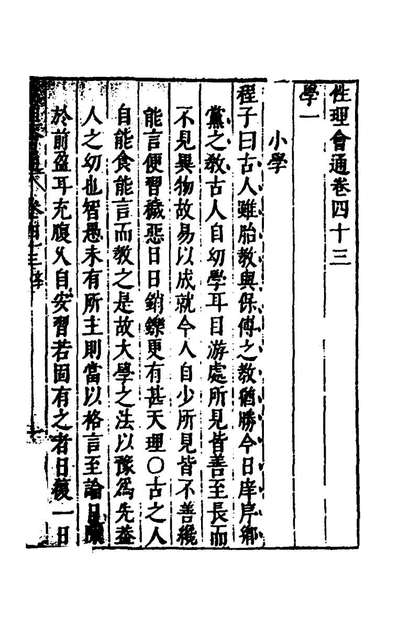 性理會通卷四十三
學一
小學
程子曰古人雖胎教與保傅之教猶勝今日庠序鄉
黨之教古人自幼學耳目游處所見皆善至長而
不見異物故易以成就今人自少所見皆不善纔
能言便習穢惡日日銷鑠更有甚天理○古之人
自能食能言而教之是故大學之法以豫爲先蓋
人之幼也智愚未有所主則當以格言至論日陳
於前盈耳充腹久自安習若固有之者日復一日